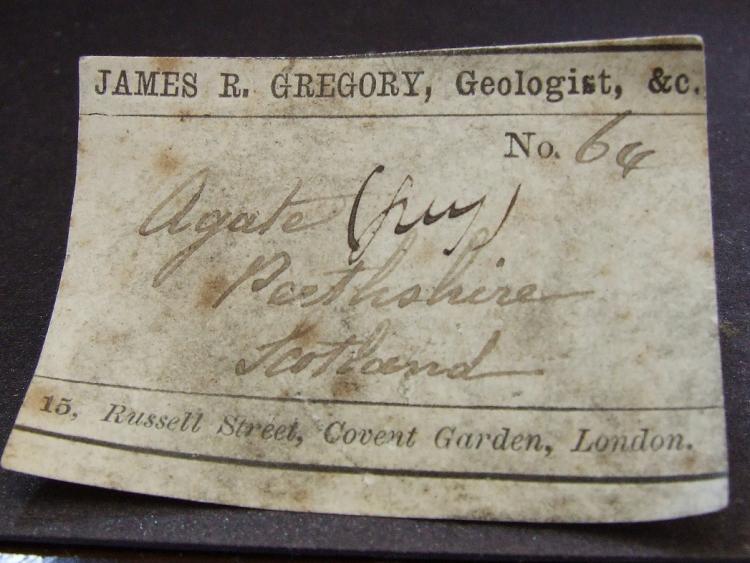 JAMES R. GREGORY, Geologist, &c.
No. 64
Agate
Perthshire
Scotland
15, Russell Street, Covent Garden, London.